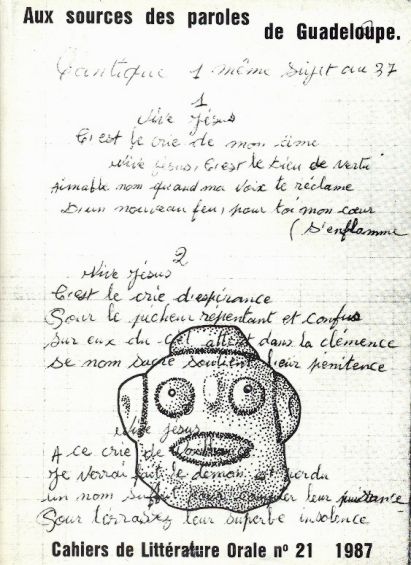 Aux sources des paroles
de Guadeloupe.
Cantique 1 même sujet au 37
1
Vive Jésus
C'est le crie de mon âme
Vive Jésus, C'est le Dieu de vertu
Aimable nom quand ma voix te réclame
D'un nouveau feu, pour toi mon cœur
(s'enflamme
2
Vive Jésus
C'est le crie d'espérance
Pour le pecheur répentant et confus
Sur eux du ciel dans la clémence
Se nom sacré soutient leur pénitence
Vive Jesus
A ce crie de
Je verrai le démon perdu
un nom leur puissance
Pour leur superbe insolence
Cahiers de Littérature Orale n° 21 1987